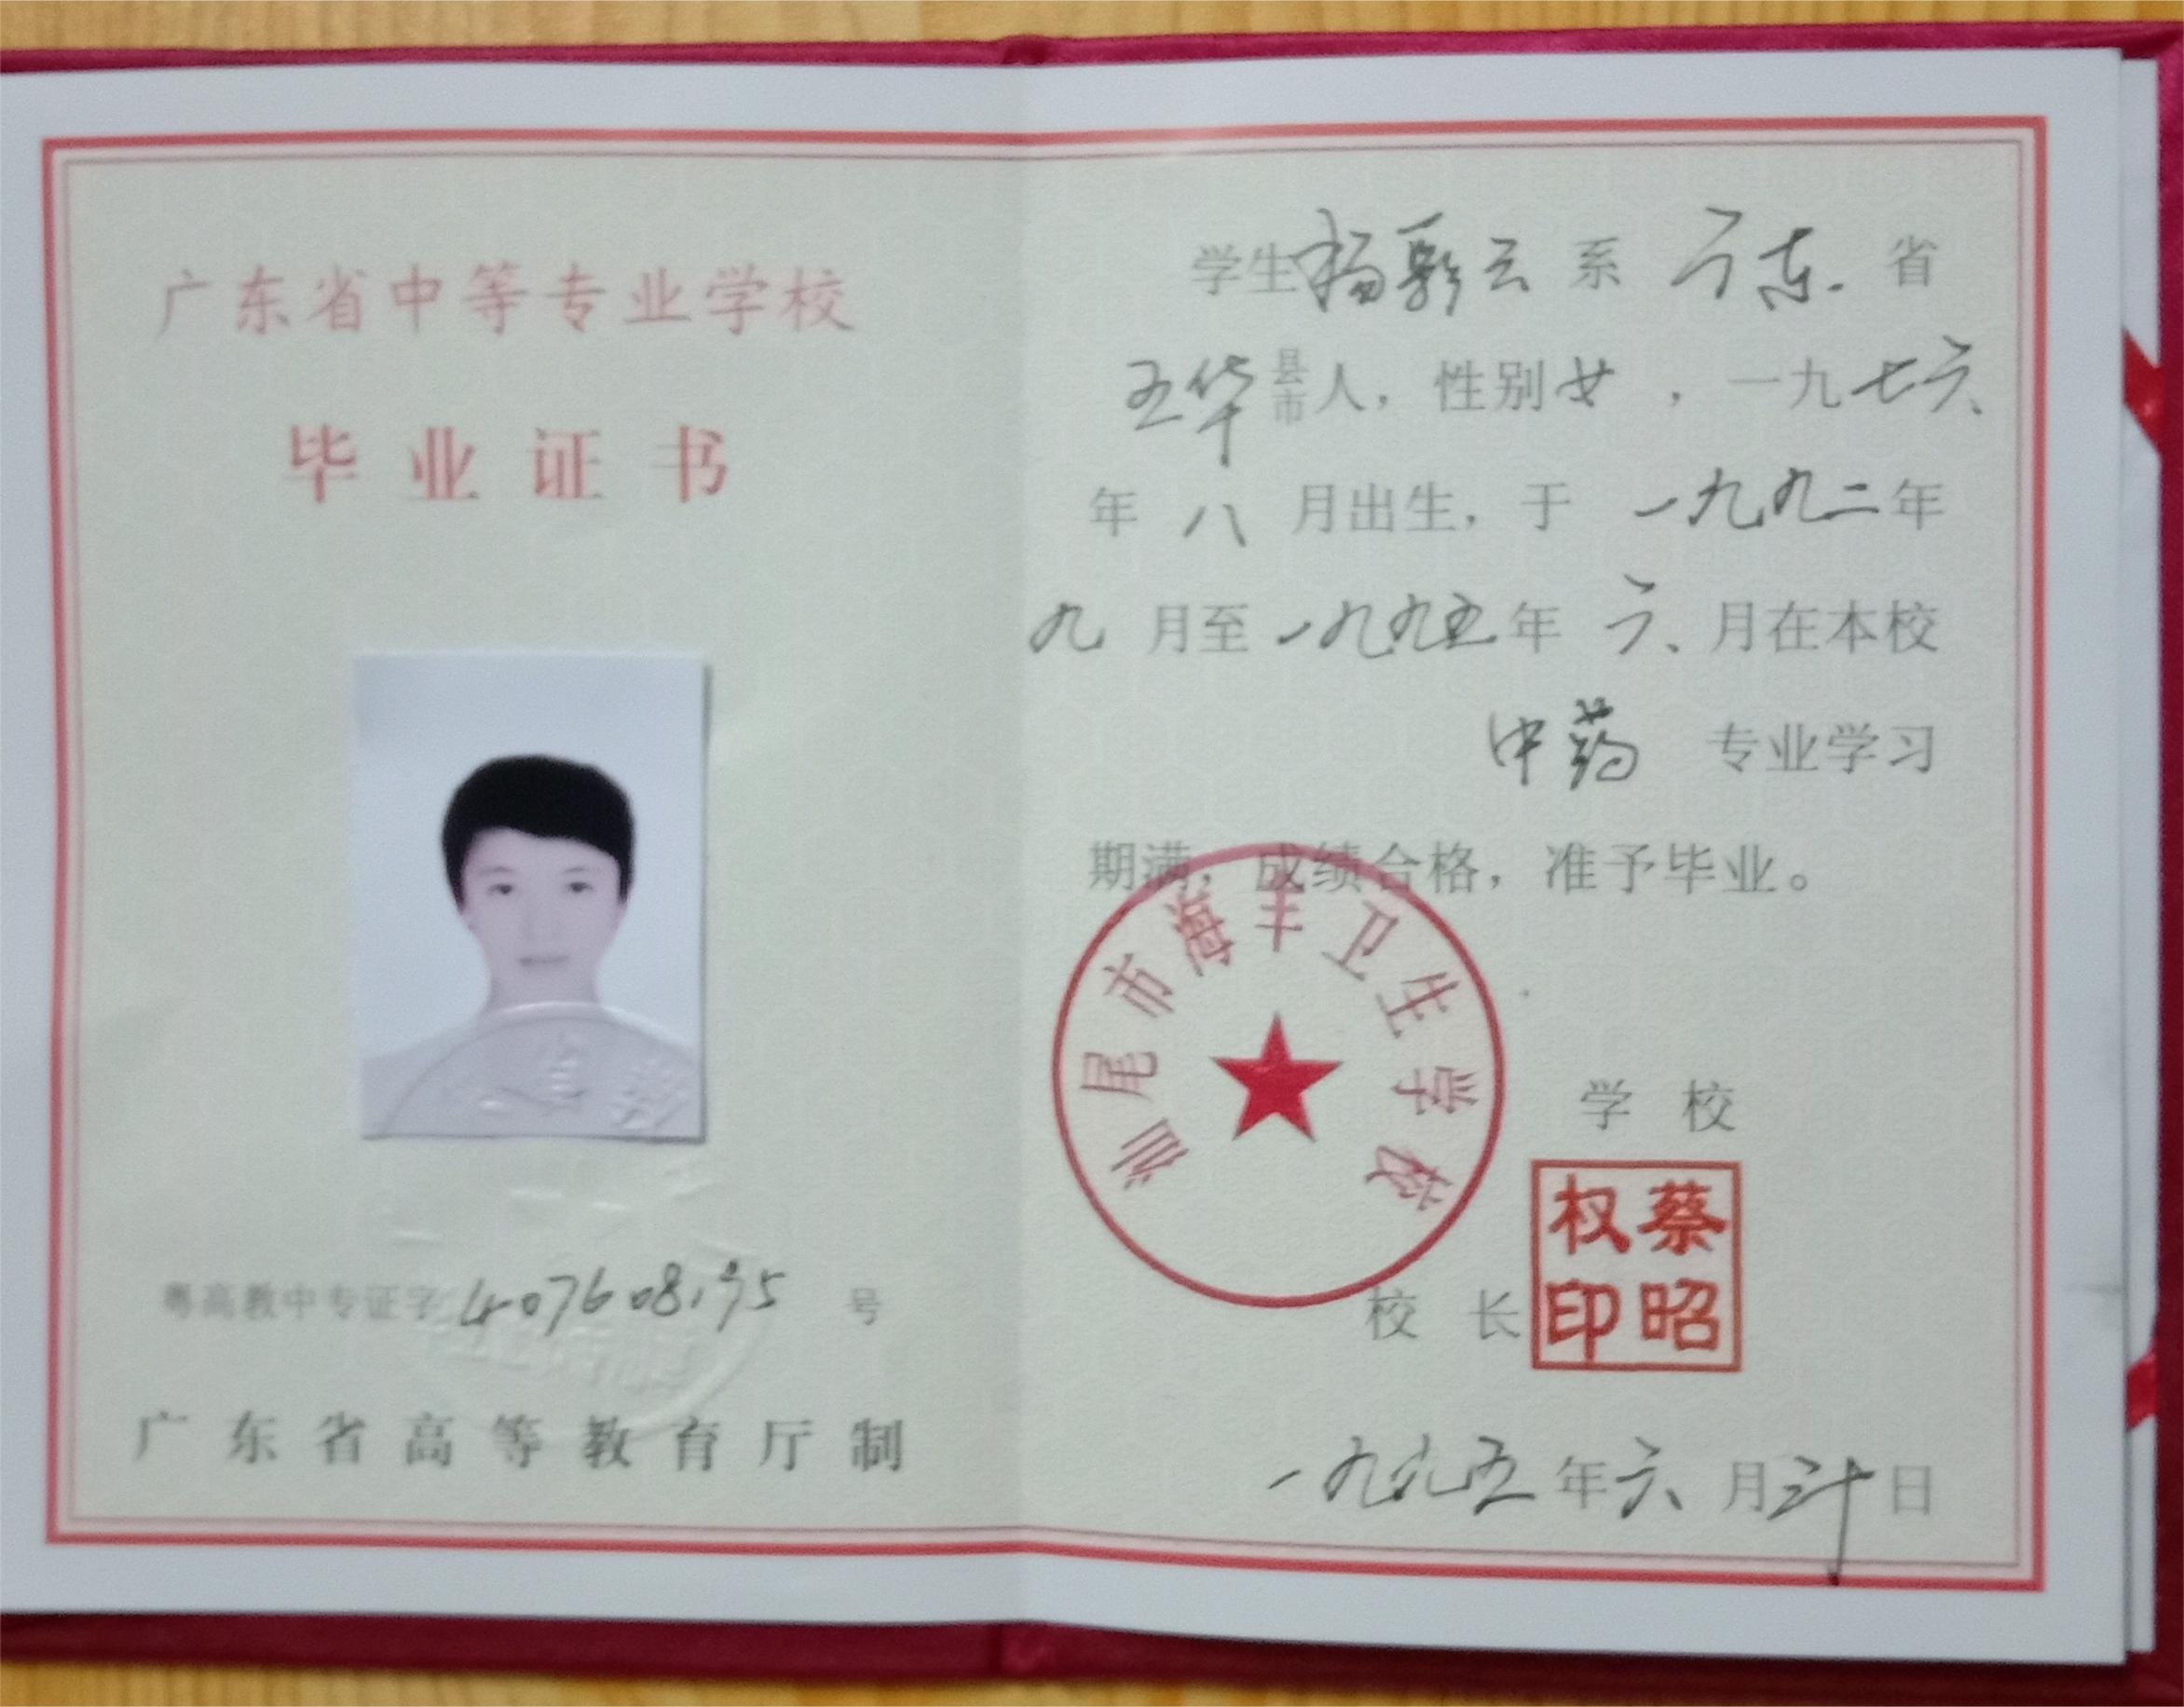 广东省中等专业学校
毕业证书
粤高教中专证字 407608195 号
广东省高等教育厅制
学生杨彩云 系 广东 省
五华 县市 人，性别 女 ，一九七六
年 八 月出生，于 一九九二 年
九 月至 一九九五 年 六 月在本校
中药 专业学习
期满，成绩合格，准予毕业。
汕尾市海丰卫生学校
学校
校长
蔡昭权印
一九九五年六月三十日